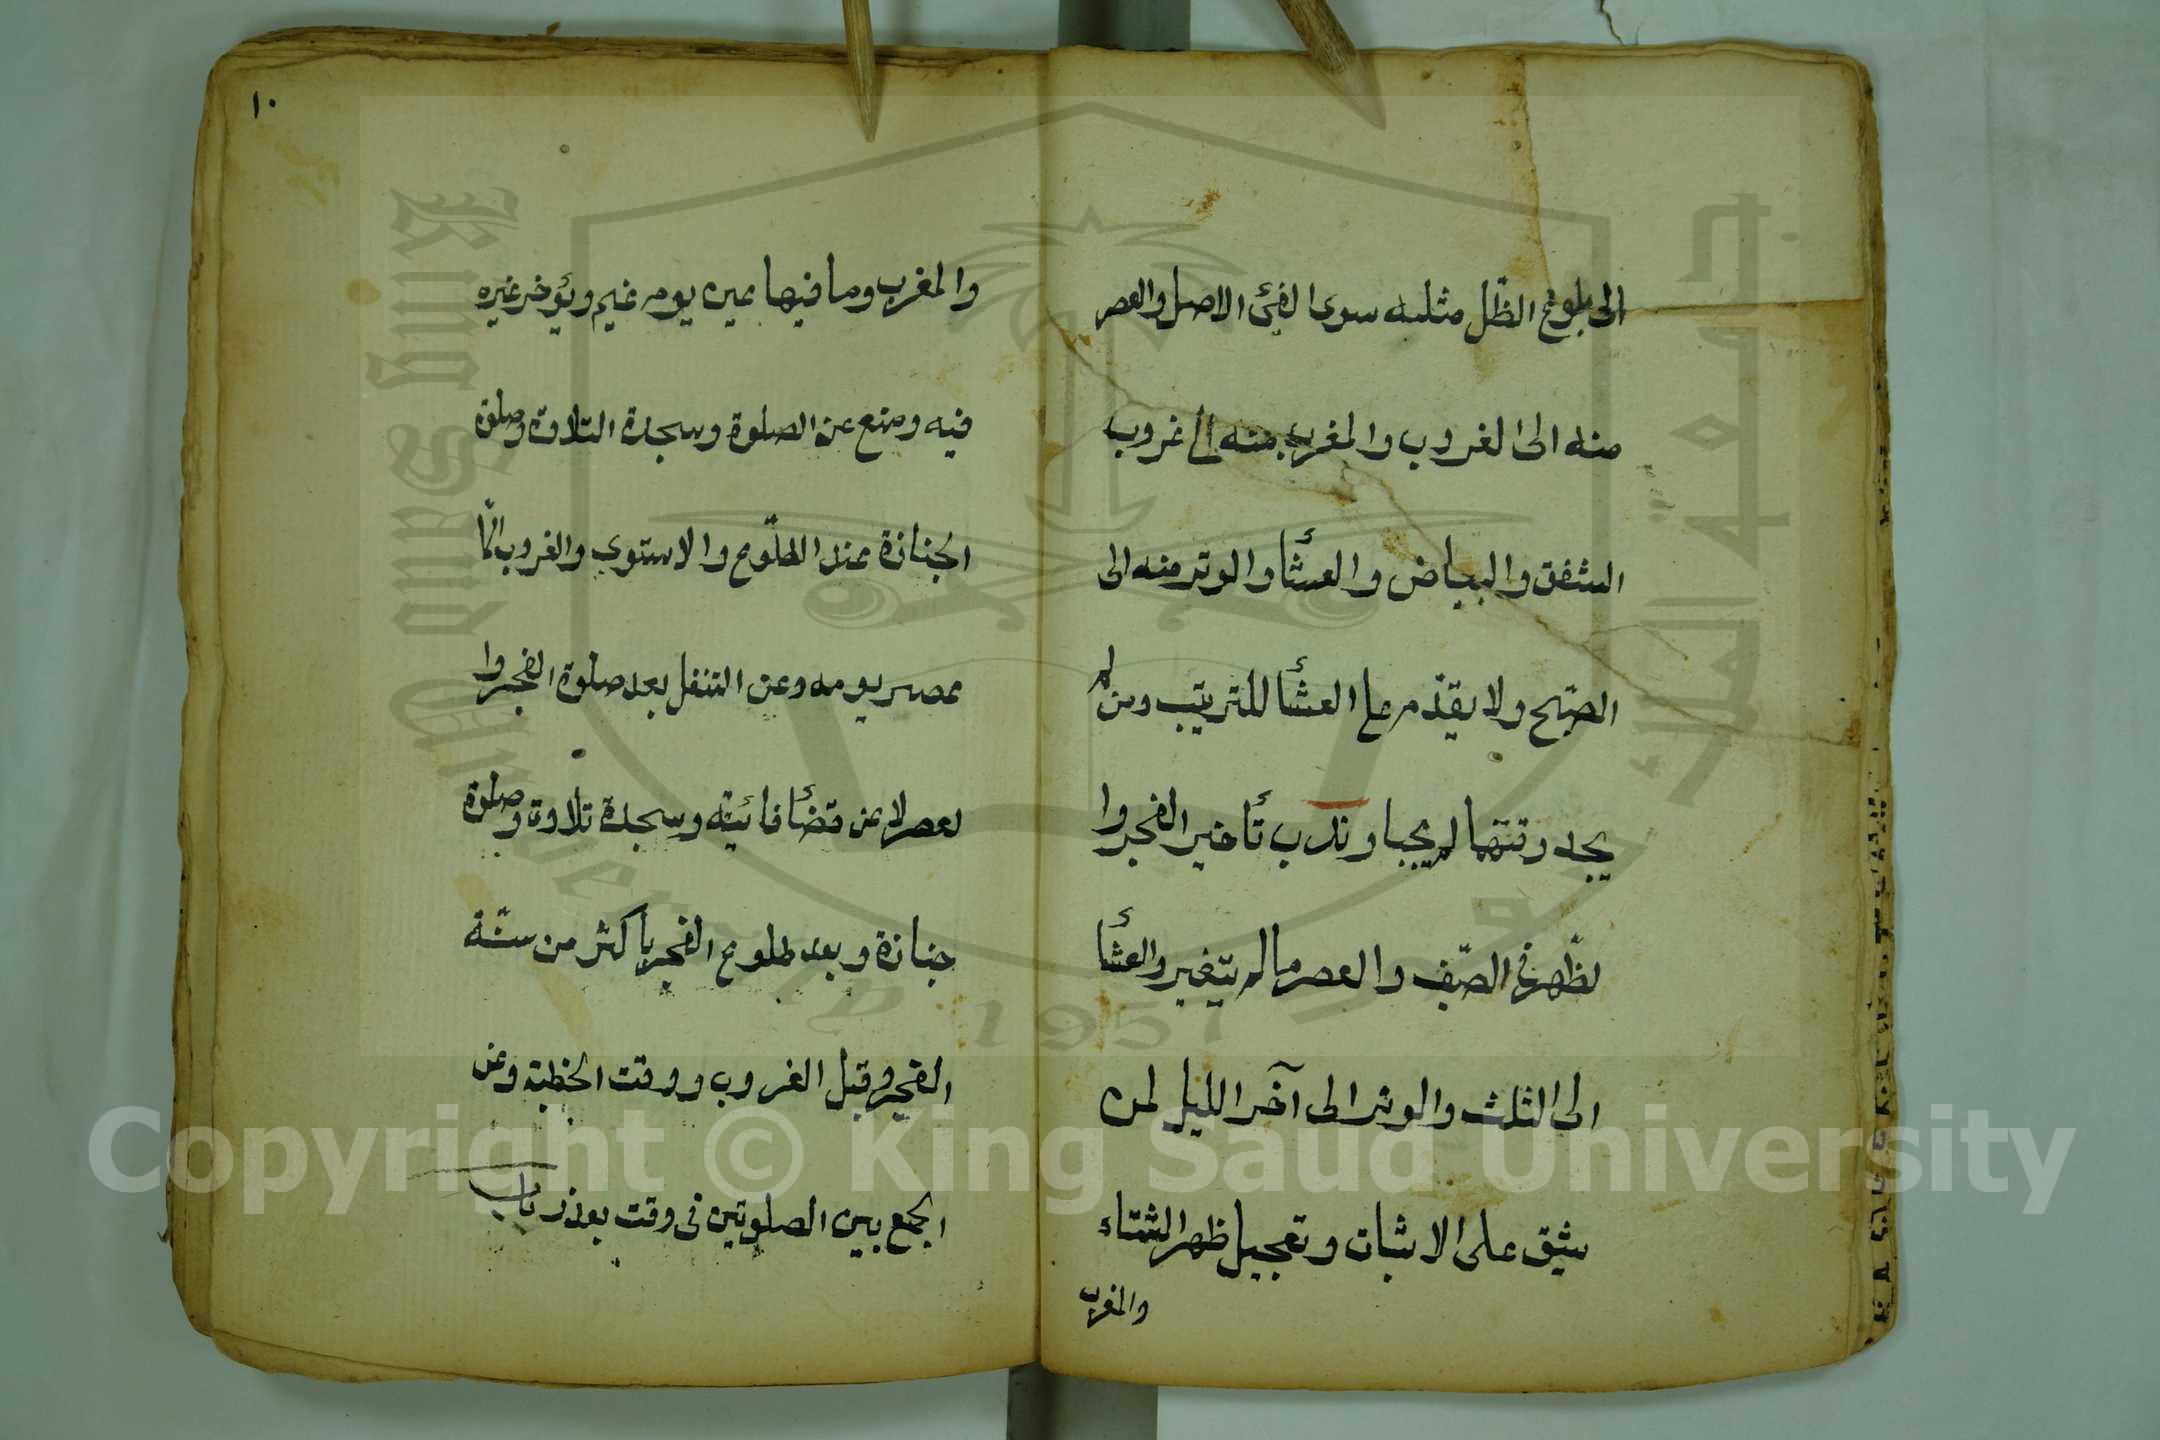 الى بلوغ الظّل مثليه سوى الفئ الاصل والعصر
منه الى الغروب والمغرب منه الى غروب
الشفق والبياض والعشأ والوتر منه الى
الصّبح ولا يقدّم على العشأ للترتيب ومن لم
يجد وقتهما لم يجبا وندب تأخير الفجر وا
لظّهر فى الصّيف والعصر ما لم يتغير والعشأ
الى الثلث والوتر الى آخر الليل لمن
يثق على الانتباه وتعجيل ظهر الشتاء
والمغرب
١٠
والمغرب وما فيها عين يوم غيم ويؤخر غيره
فيه ومنع عن الصلوة وسجدة التلاوة وصلوة
الجنازة عند الطلوع والاستوى والغروب الّا
عصر يومه وعن التنفل بعد صلوة الفجر وا
لعصر لا عن قضأ فائتة وسجدة تلاوة وصلوة
جنازة وبعد طلوع الفجر باكثر من سنّة
الفجر وقبل الغروب ووقت الخطبة وعن
الجمع بين الصلوتين فى وقت بعذر باب
Copyright © King Saud University
King Saud University
1957